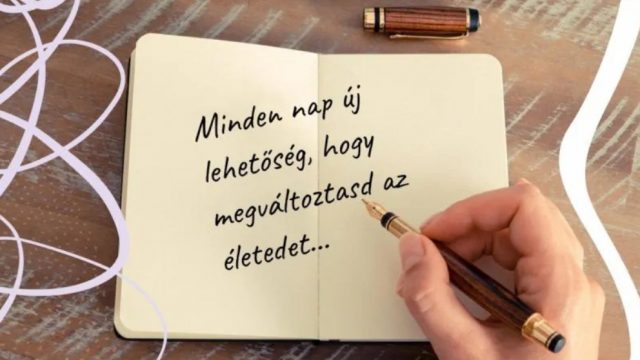 Minden nap új
lehetőség, hogy
megváltoztasd az
életedet...